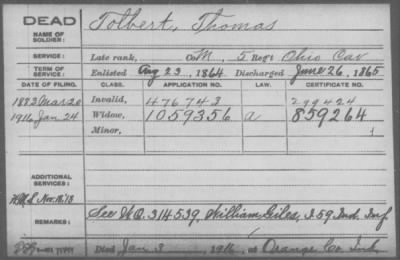 DEAD
NAME OF SOLDIER:
Tolbert, Thomas
SERVICE: Late rank, Co. M, 5 Reg't Ohio Cav
TERM OF SERVICE: Enlisted Aug 23, 1864 Discharged June 26, 1865
DATE OF FILING. CLASS. APPLICATION NO. LAW. CERTIFICATE NO.
1883 Mar 20 Invalid, 476743 299424
1916 Jan 24 Widow, 1059356 a 859264
Minor, 1
ADDITIONAL SERVICES:
Nov.
REMARKS: See W.O. 314539, William Giles, I 59 Ind. Inf
Died Jan 3, 1916, at Orange Co. Ind.